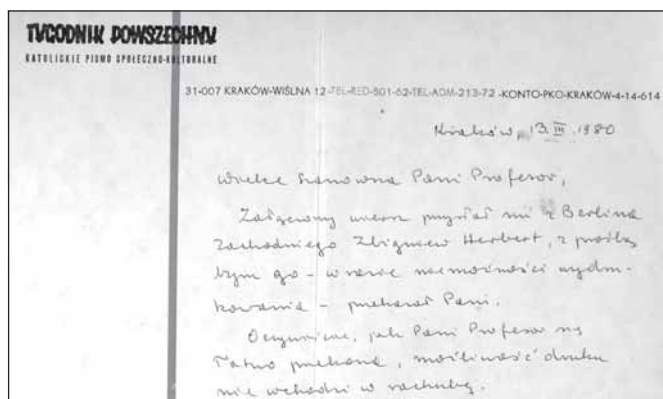 TYGODNIK POWSZECHNY
KATOLICKIE PISMO SPOŁECZNO-KULTURALNE
31-007 KRAKÓW-WIŚLNA 12-TEL-RED-501-62-TEL-ADM-213-72-KONTO-PKO-KRAKÓW-4-14-614
Kraków, 13 III 1980
Wielce Szanowna Pani Profesor,
Załączony wiersz przysłał mi z Berlina
Zachodniego Zbigniew Herbert, z prośbą
bym go - w razie niemożności wydru-
kowania - przekazał Pani.
Oczywiście, jak Pani Profesor się
łatwo przekona, możliwość druku
nie wchodzi w rachubę.